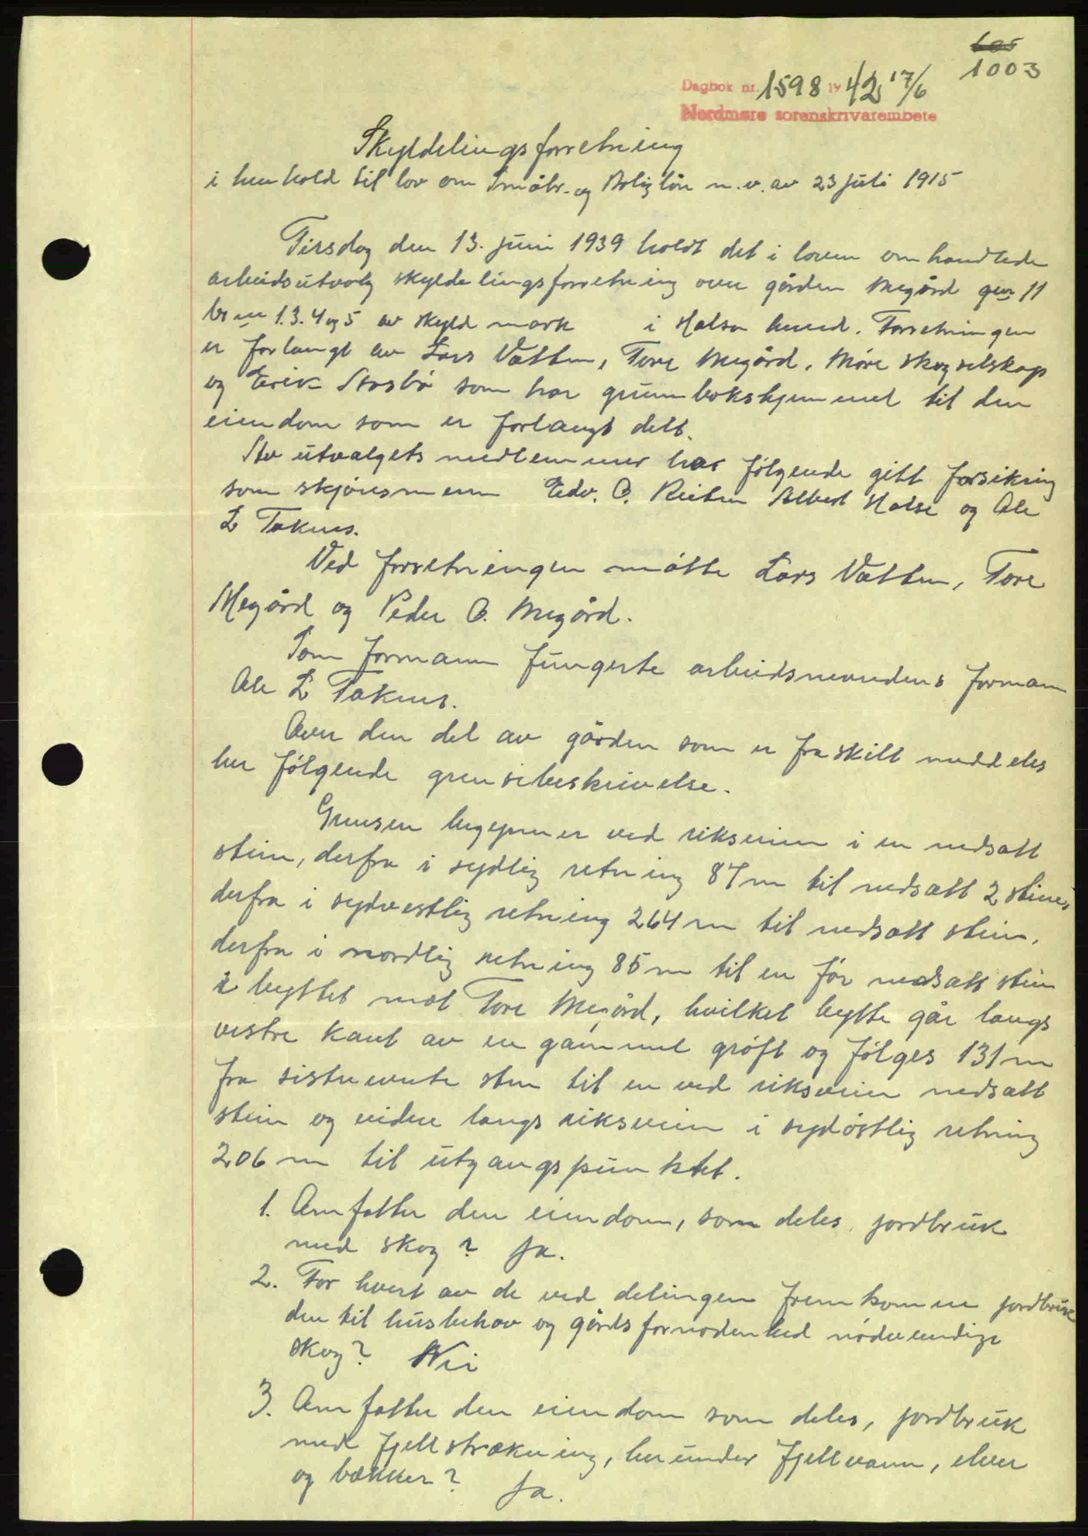 1003
Dagbok nr. 1598 19 42 17/6
Nordmøre sorenskrivarembete
Skyldelingsforretning
i henhold til lov om Småbr. og Boliglån m. v. av 23 juli 1915
Tirsdag den 13. juni 1939 holdt det i loven omhandlede
arbeidsutvalg skyldelingsforretning over gården Megård gnr 11
br nr 1.3.4 og 5 av skyld mark i Halsa herred. Forretningen
er forlangt av Lars Vatten, Tore Megård, Møre skogselskap
og Eerik som har grunnbokshjemmel til den
eiendom som er forlangt delt.
Av utvalgets medlemmer har følgende gitt forsikring
som skjønsmenn Edv. O. Rieten Albert Halse og Ole
L Taknes.
Ved forretningen møtte Lars Vatten, Tore
Megård og Peder O. Megård.
Som formann fungerte arbeidsnevndens formann
Ole L Taknes.
Over den del av gården som er fraskilt meddeles
her følgende grensebeskrivelse.
Grensen begynner ved riksveien i en nedsatt
stein, derfra i sydlig retning 87 m til nedsatt 2 steiner
derfra i sydvestlig retning 264 m til nedsatt stein,
derfra i nordlig retning 85 m til en før nedsatt stein
i byttet mot Tore Megård, hvilket bytte går langs
vestre kant av en gammel grøft og følges 131 m
fra sistnevnte sten til en ved riksveien nedsatt
stein og videre langs riksveien i sydøstlig retning
206 m til utgangspunktet.
1. Omfatter den eiendom, som deles, jordbruk
med skog? Ja.
2. For hvert av de ved delingen fremkomne jordbruk
den til husbehov og gårdsfornødenhed nødvendige
skog? Nei
3. Omfatter den eiendom som deles, jordbruk
med fjellstrekning, herunder fjellvann, elver
og bekker? Ja.